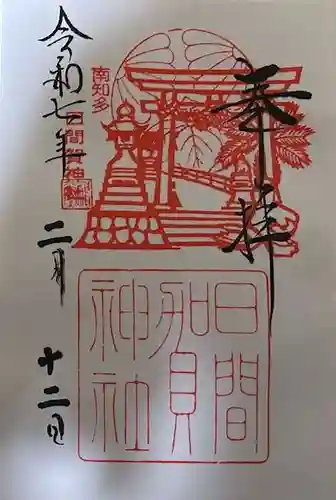 奉拝
南知多
日間賀神社
日間賀神社
令和七年
二月
十二日